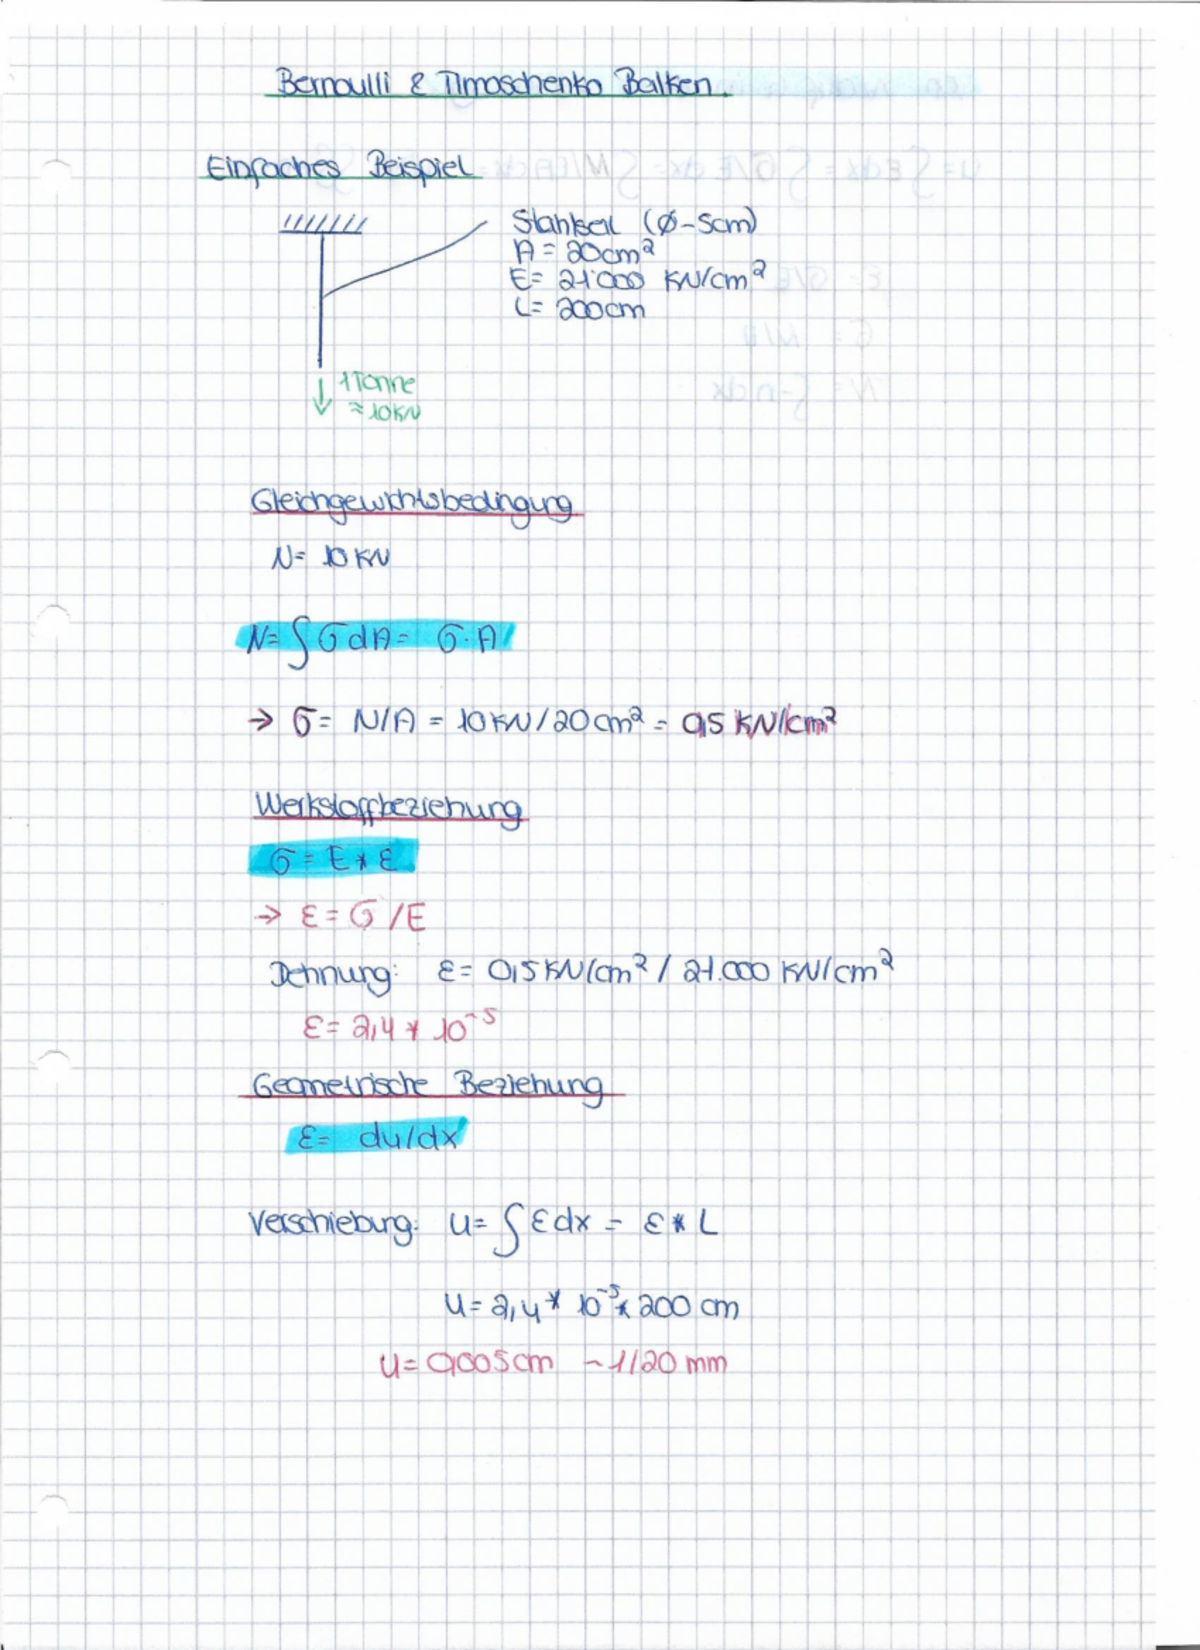 Bernoulli & Timoschenko Balken.
Einfaches Beispiel
Stahlseil (Ø~5cm)
A = 20cm²
E= 21.000 KN/cm²
L= 200cm
↓ 1 Tonne
≈ 10KN
Gleichgewichtsbedingung
N= 10 KN
N= ∫σdA= σ·A
→ σ= N/A = 10KN/20cm² = 0,5 KN/cm²
Werkstoffbeziehung
σ = E * ε
→ ε = σ/E
Dehnung: ε= 0,5KN/cm² / 21.000 KN/cm²
ε= 2,4 * 10⁻⁵
Geometrische Beziehung
ε= du/dx
Verschiebung: u= ∫εdx = ε * L
u= 2,4 * 10⁻⁵ * 200 cm
u= 0,005cm ~1/20 mm